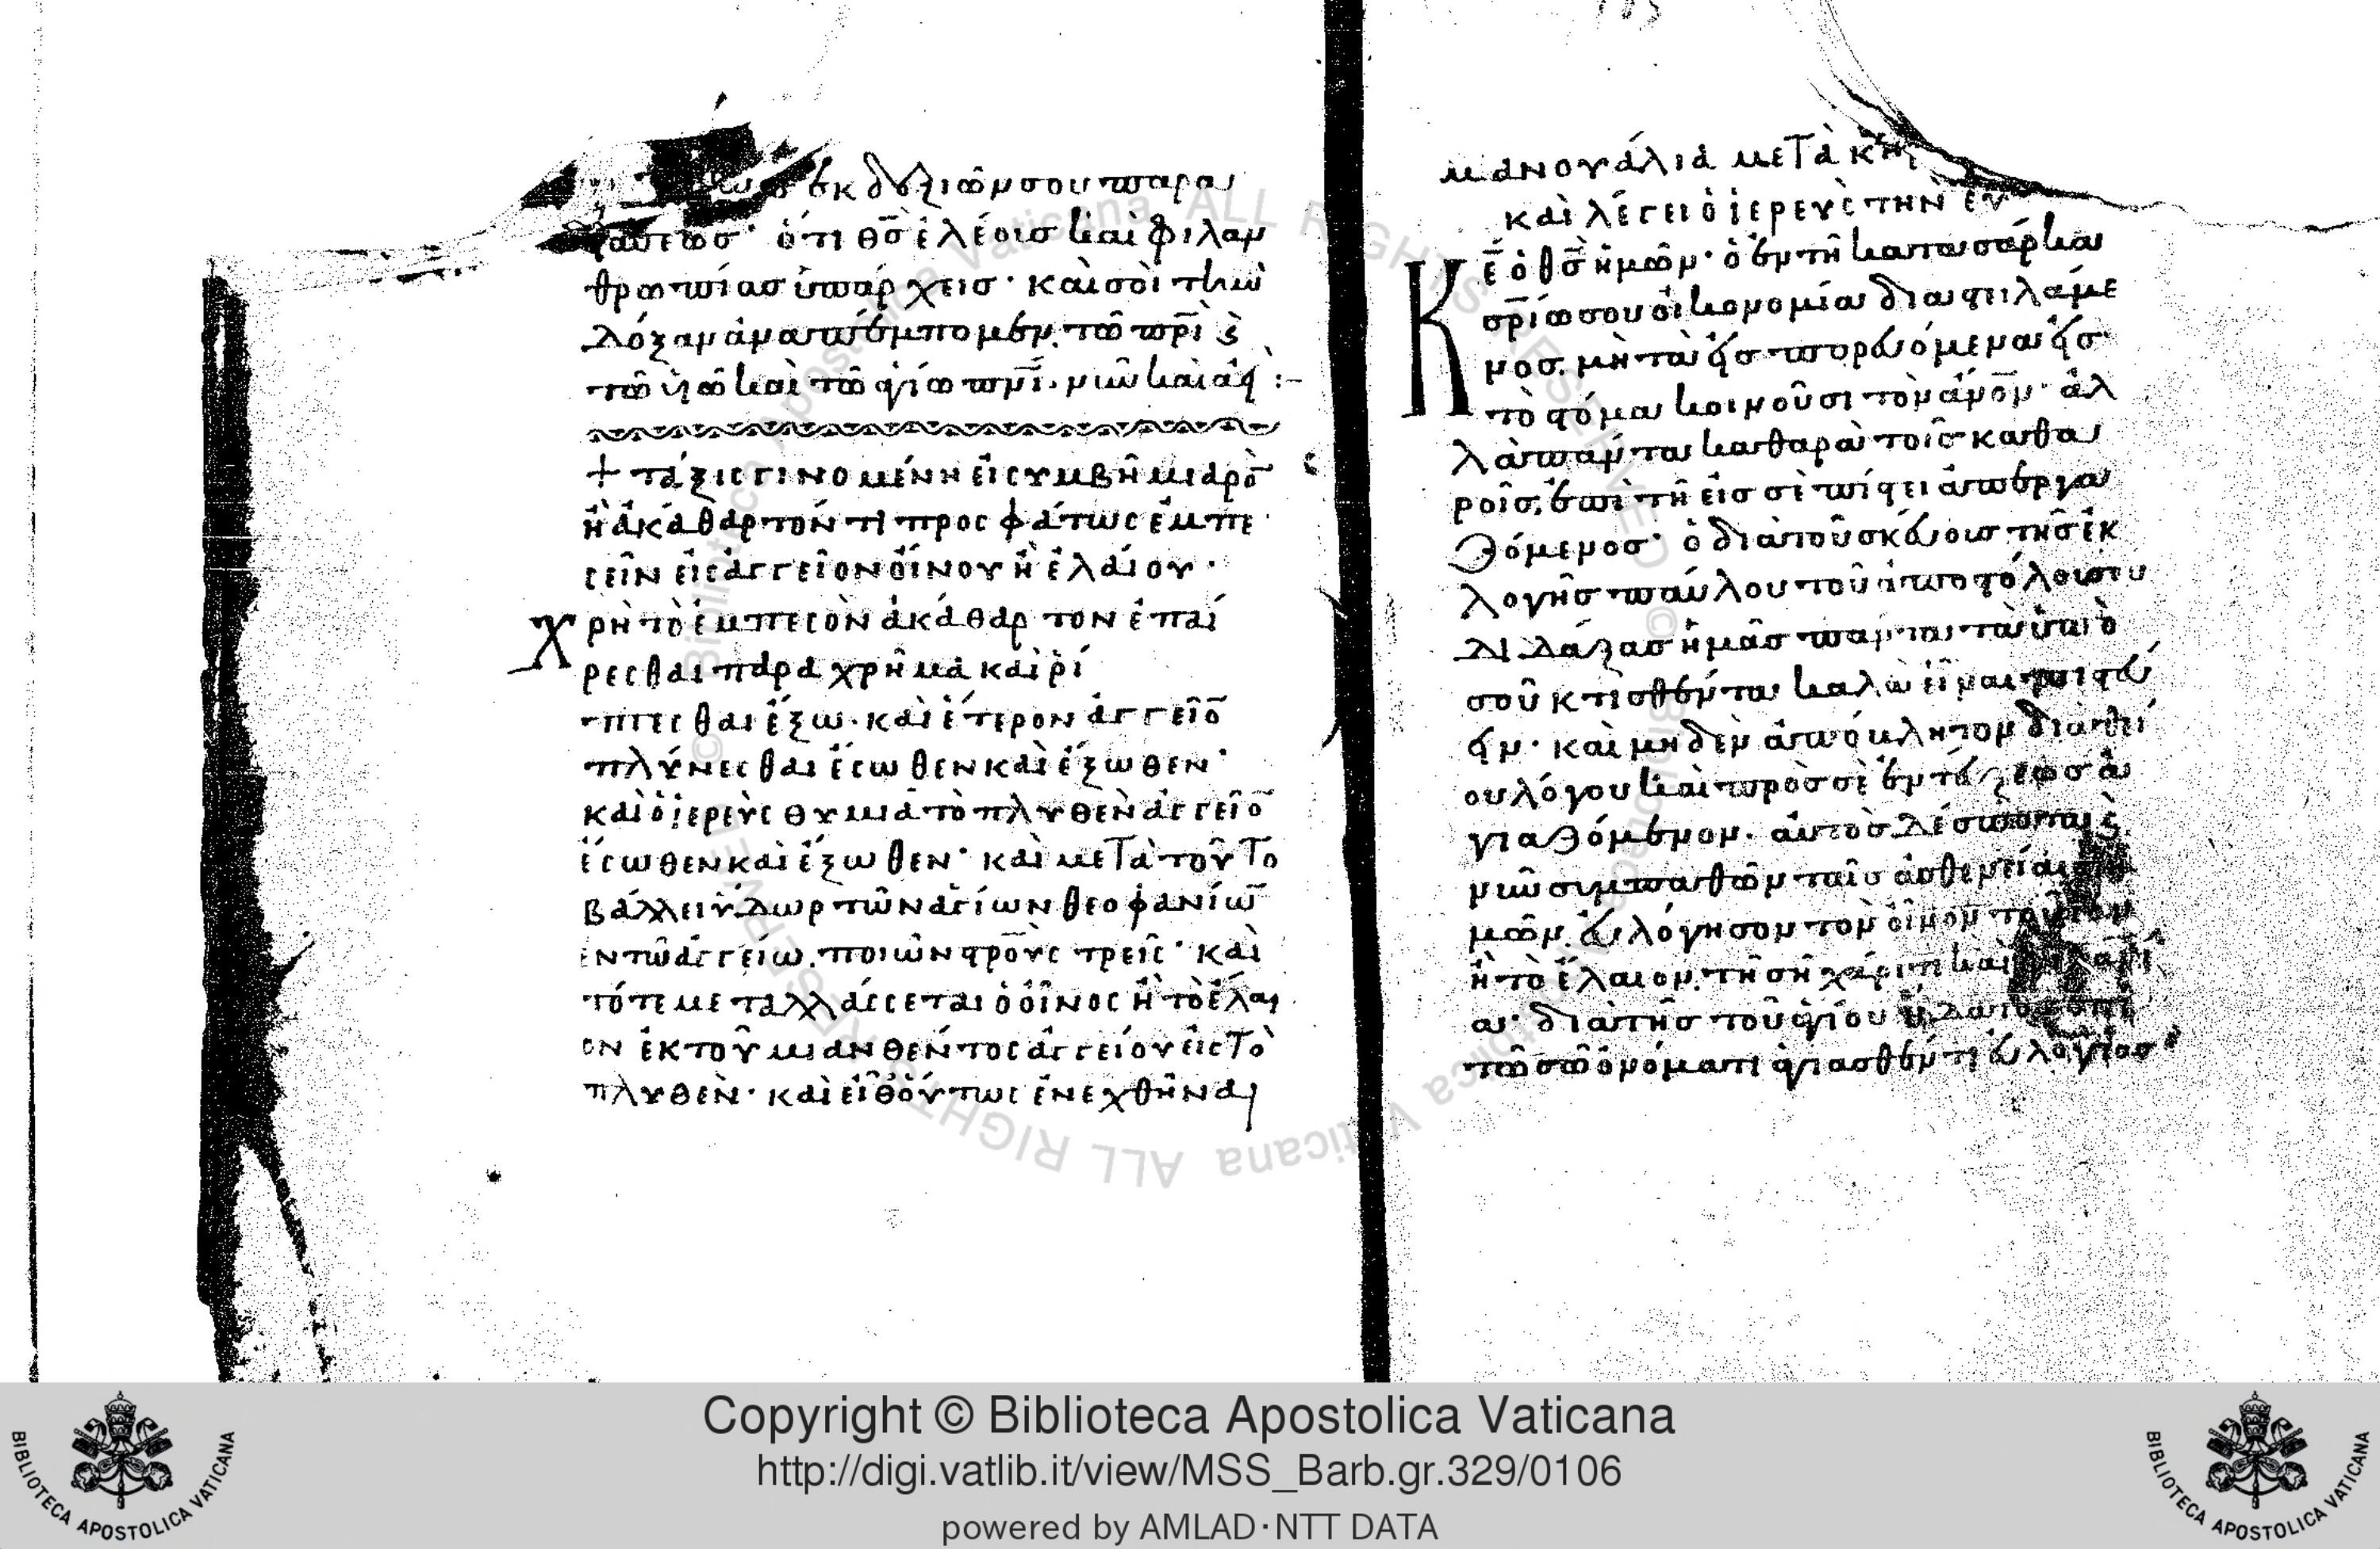 ἐκ δεξιῶν σου παρα
στάντος· ὅτι θ̅ς̅ ἐλέους καὶ φιλαν
θρωπίας ὑπάρχεις· καὶ σοὶ τὴν
δόξαν ἀναπέμπομεν. τῶ π̅ρ̅ι̅ ϛ̀
τῶ υ̅ω̅ καὶ τῶ ἁγίω π̅ν̅ι̅. νῦν καὶ ἀεὶ :-
+ τάξις γινομένη εἰ συμβῆ μιαρὸ̅
ἢ ἀκάθαρτόν τι προσφάτως ἐμπε
σεῖν εἰς ἀγγεῖον οἴνου ἢ ἐλαίου·
Χρὴ τὸ ἐμπεσὸν ἀκάθαρτον ἐπαί
ρεσθαι παραχρῆμα καὶ ρί
πτεσθαι ἔξω. καὶ ἕτερον ἀγγεῖο̅
πλύνεσθαι ἔσωθεν καὶ ἔξωθεν·
καὶ ὁ ἱερεὺς θυμιᾶ τὸ πλυθὲν ἀγγεῖο̅
ἔσωθεν καὶ ἔξωθεν· καὶ μετὰ τοῦτο
βάλλει ὕδωρ τῶν ἁγίων θεοφανίω̅
ἐν τῶ ἀγγείω. ποιῶν σ̅ρ̅ο̅ὺς τρεῖς· καὶ
τότε μεταλλάσσεται ὁ οἶνος ἢ τὸ ἔλαι
ον ἐκ τοῦ μιανθέντος ἀγγείου εἰς τὸ
πλυθὲν· καὶ εἶθ᾽ οὕτως ἐνεχθῆναι
μανουάλια μετὰ
καὶ λέγει ὁ ἱερεὺς τὴν εὐ
Κ̅ε̅ ὁ θ̅ς̅ ἡμῶν· ὁ ἐν τῆ κατὰ σάρκα
σ̅ρ̅ίω σου οἰκονομία διαστειλάμε
νος. μὴ τὰ εἰσπορευόμενα εἰς
τὸ στόμα κοινοῦσι τὸν ἄν̅ο̅ν· ἀλ
λὰ πάντα καθαρὰ τοῖς καθα
ροῖς. ἐπὶ τῆ εἰς σὲ πίστει ἀπεργα
ζόμενος· ὁ διὰ τοῦ σκεύους τῆς ἐκ
λογῆς παύλου τοῦ ἀποστόλου σου
διδάξας ἡμᾶς πάντα τὰ ὑπὸ
σοῦ κτισθέντα καλὰ εἶναι
καὶ μηδὲν ἀπόβλητον διὰ θεί
ου λόγου καὶ πρὸς σὲ ἐντεύξεως ἁ
γιαζόμενον. αὐτὸς δέσποτα ϛ̀
νῦν συμπαθῶν ταῖς ἀσθενείαις ἡ
μῶν. εὐλόγησον τὸν οἶνον τοῦτον
ἢ τὸ ἔλαιον. τῆ σῆ χάριτι καὶ
διὰ τῆς τοῦ ἁγίου ὕδατος
τῶ σῶ ὀνόματι ἁγιασθέντι εὐλογίας·
Copyright © Biblioteca Apostolica Vaticana
http://digi.vatlib.it/view/MSS_Barb.gr.329/0106
powered by AMLAD·NTT DATA
BIBLIOTECA APOSTOLICA VATICANA
BIBLIOTECA APOSTOLICA VATICANA